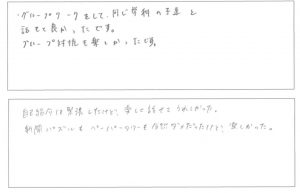 ・グループワークをして、同じ学科の子達と
話せて良かったです。
グループ対抗も楽しかったです。
自己紹介は緊張したけど、楽しく話せてうれしかった。
新聞パズルも ペーパータワーも 全然ダメだったけど、楽しかった。